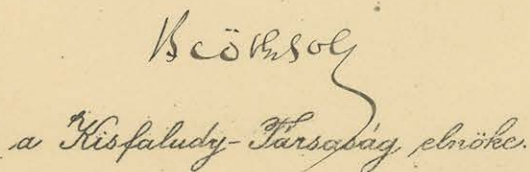 Beöthy Zsolt
a Kisfaludy-Társaság elnöke.